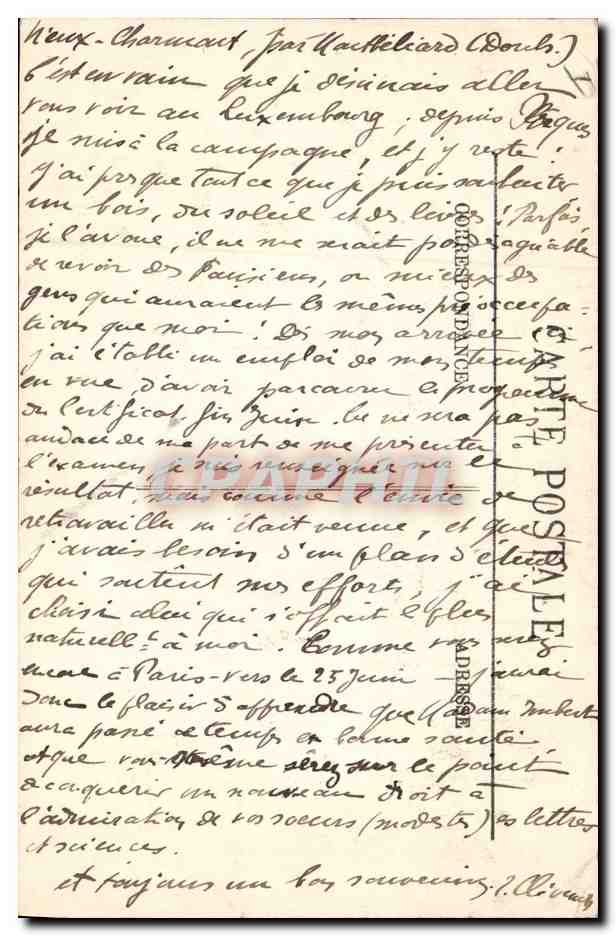 Vieux-Charmont, par Montbéliard (Doubs.)
C'est en vain que je désirais aller
vous voir au Luxembourg ; depuis Pâques
je suis à la campagne, et j'y reste !
J'ai presque tout ce que je puis souhaiter
un bois, du soleil et des livres ! Parfois
je l'avoue, il ne me serait pas désagréable
de revoir des Parisiens, ou mieux des
gens qui auraient les mêmes préoccupa-
tions que moi ! Dès mon arrivée
j'ai établi un emploi de mon temps
en vue d'avoir parcouru le programme
du Certificat fin Juin. Ce ne sera pas
audace de ma part de me présenter à
l'examen, je suis renseignée sur le
résultat, mais comme l'envie de
retravailler m'était venue, et que
j'avais besoin d'un plan d'étude
qui soutînt mes efforts, j'ai
choisi celui qui s'offrait le plus
naturellt à moi. Comme vous serez
encore à Paris - vers le 25 Juin - j'aurai
donc le plaisir d'apprendre que Madame Imbert
aura passé ce temps en bonne santé
et que vous-même serez sur le point
d'acquérir un nouveau droit à
l'admiration de vos sœurs (modestes) ès lettres
et sciences.
et toujours un bon souvenir.
CARTE POSTALE
CORRESPONDANCE
ADRESSE
CPAPHIL